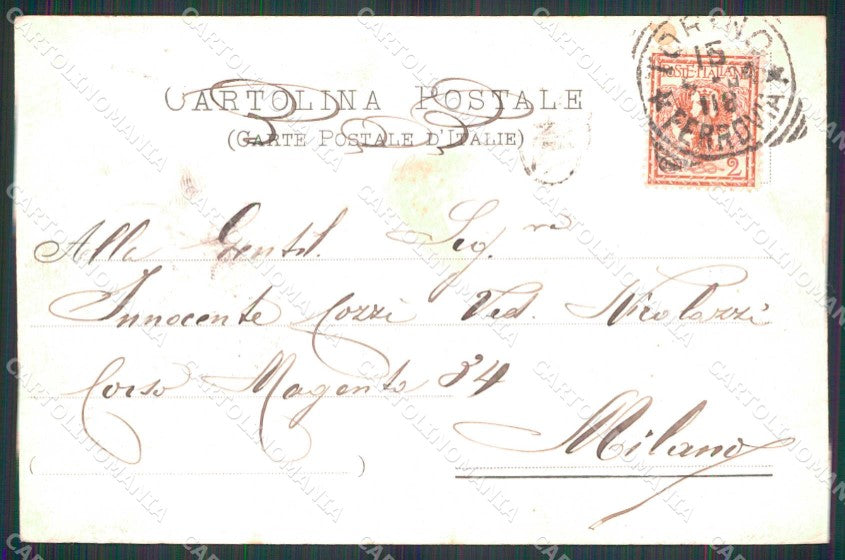 CARTOLINA POSTALE
(CARTE POSTALE D'ITALIE)
TORINO
15
FERROVIA
POSTE ITALIANE
2
Alla Gentil. Sig.ra
Innocente Cozzi Ved. Nicolazzi
Corso Magenta 34
Milano
CARTOLINOMANIA